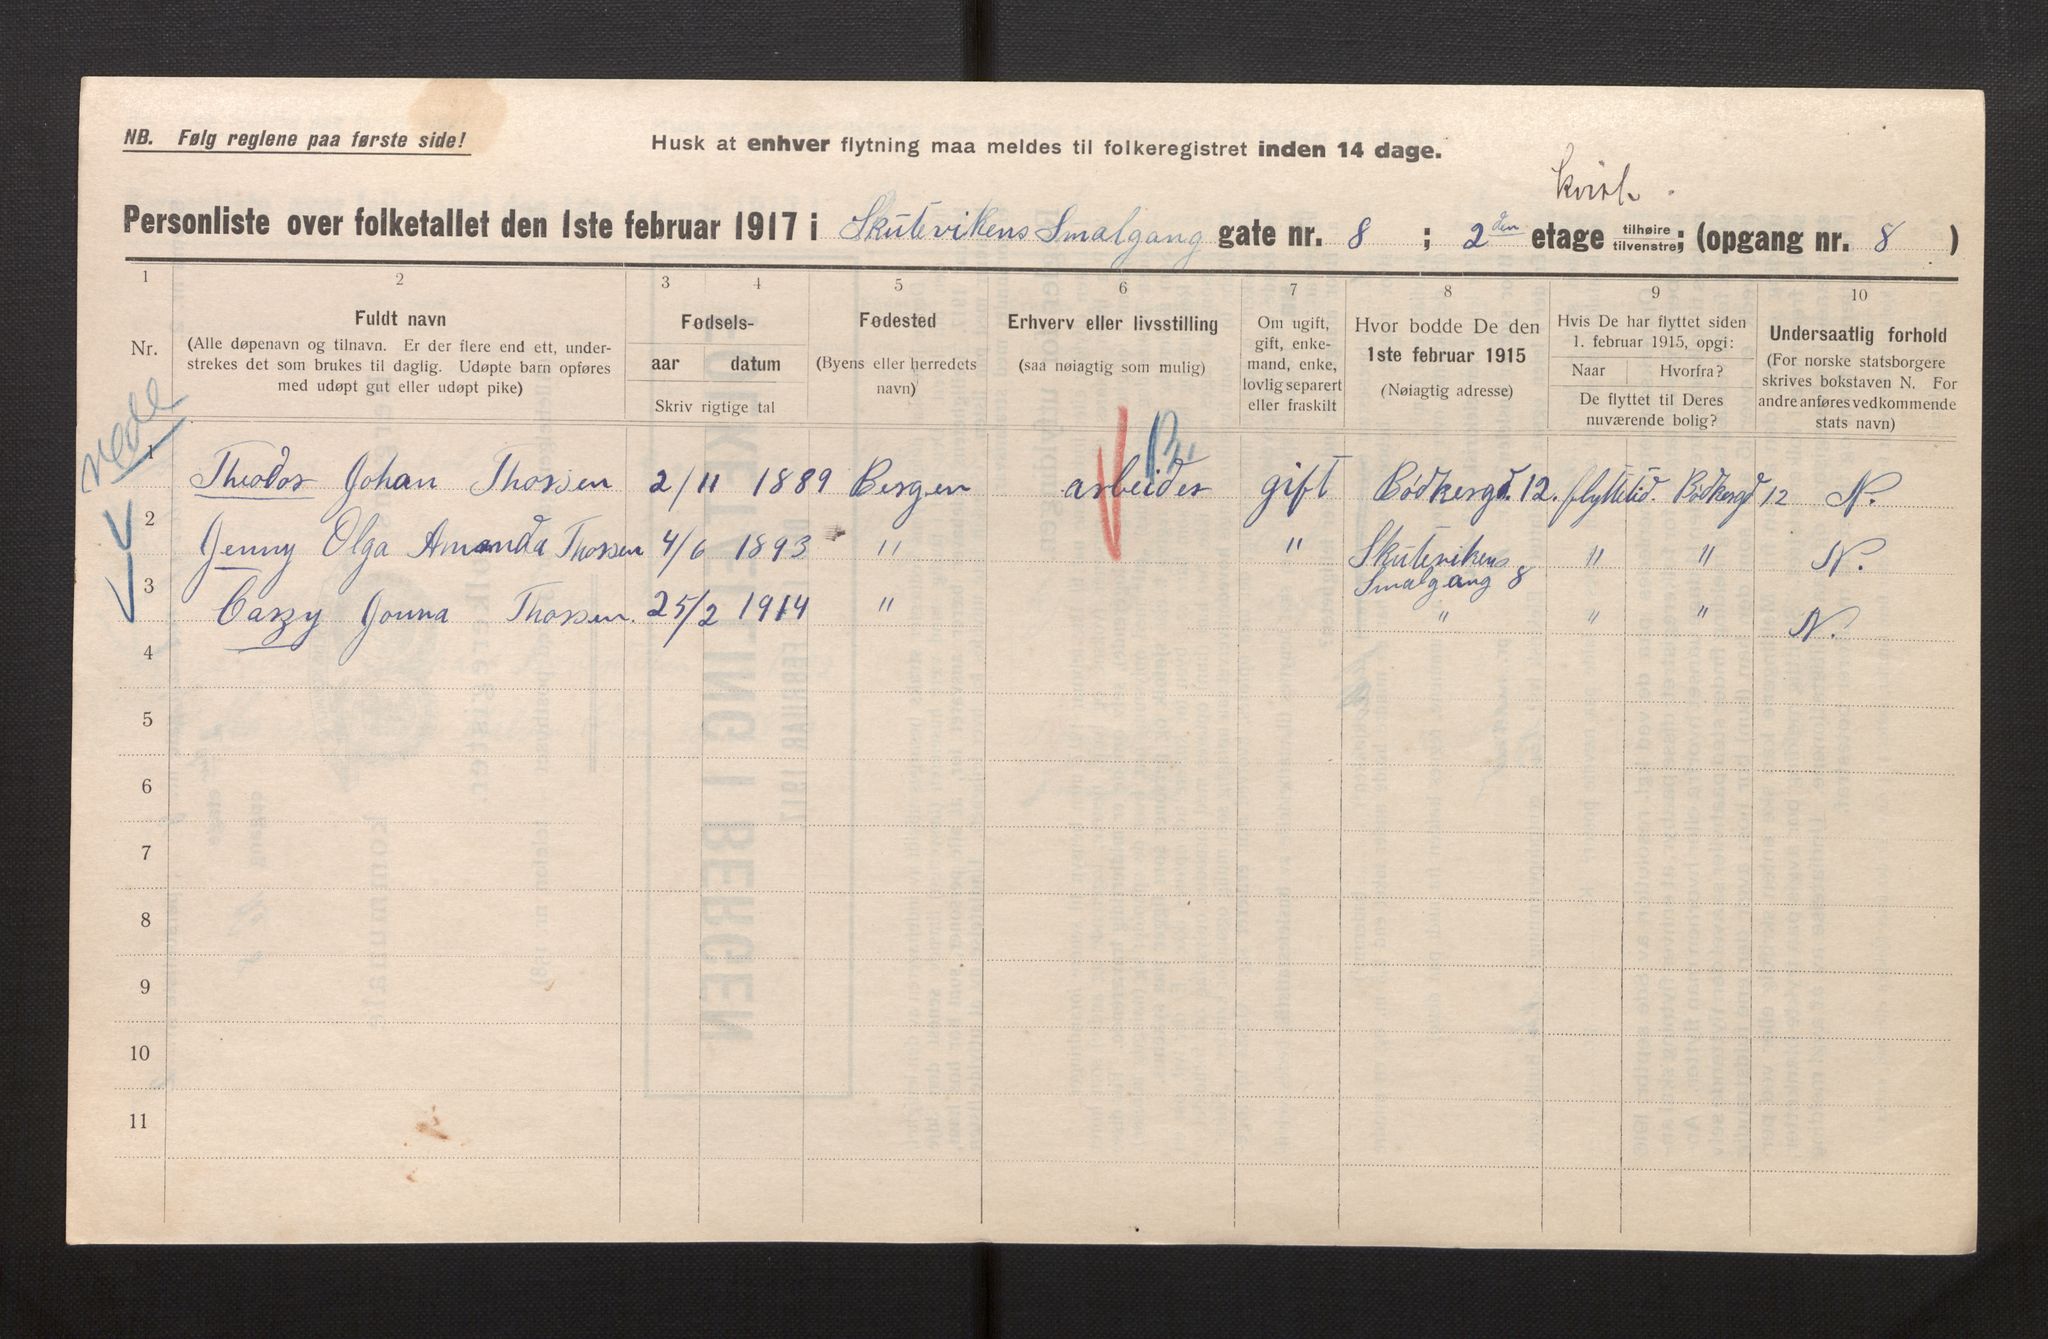 NB. Følg reglene paa første side!
Husk at enhver flytning maa meldes til folkeregistret inden 14 dage.
kvist.
Personliste over folketallet den 1ste februar 1917 i Skutevikens Smalgang gate nr. 8 ; 2den etage tilhøire tilvenstre; (opgang nr. 8 )
1 2 3 4 5 6 7 8 9 10
Nr.
Fuldt navn
(Alle døpenavn og tilnavn. Er der flere end ett, under-
strekes det som brukes til daglig. Udøpte barn opføres
med udøpt gut eller udøpt pike)
Fødsels-
aar datum
Skriv rigtige tal
Fødested
(Byens eller herredets
navn)
Erhverv eller livsstilling
(saa nøiagtig som mulig)
Om ugift,
gift, enke-
mand, enke,
lovlig separert
eller fraskilt
Hvor bodde De den
1ste februar 1915
(Nøiagtig adresse)
Hvis De har flyttet siden
1. februar 1915, opgi:
Naar Hvorfra?
De flyttet til Deres
nuværende bolig?
Undersaatlig forhold
(For norske statsborgere
skrives bokstaven N. For
andre anføres vedkommende
stats navn)
1 Theodor Johan Thorsen 2/11 1889 Bergen arbeider gift Bødkergd. 12. flyttetid. Bødkergd 12 N.
2 Jenny Olga Amanda Thorsen 4/6 1893 " " Skutevikens " " N.
Smalgang 8
3 Carzy Jonna Thorsen. 25/2 1914 " " " " N.
4
5
6
7
8
9
10
11